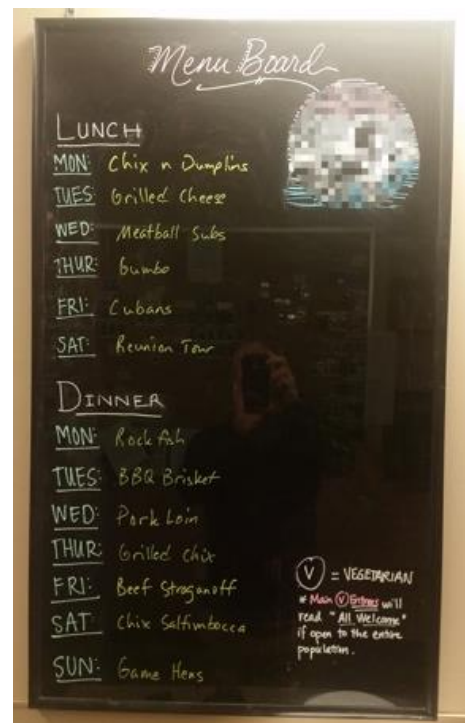 Menu Board
LUNCH
MON: Chix n Dumplins
TUES: Grilled Cheese
WED: Meatball Subs
THUR: Gumbo
FRI: Cubans
SAT: Reunion Tour
DINNER
MON: Rockfish
TUES: BBQ Brisket
WED: Pork Loin
THUR: Grilled Chix
FRI: Beef Stroganoff
SAT: Chix Saltimbocca
SUN: Game Hens
V = VEGETARIAN
* Main V Entrees will
read "All Welcome"
if open to the entire
population.